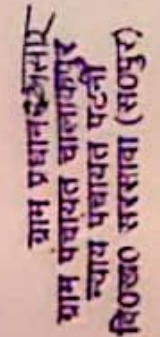 ग्राम प्रधान
ग्राम पंचायत चालाकपुर
न्याय पंचायत पटनी
वि०ख० सरसावा (स०पुर)